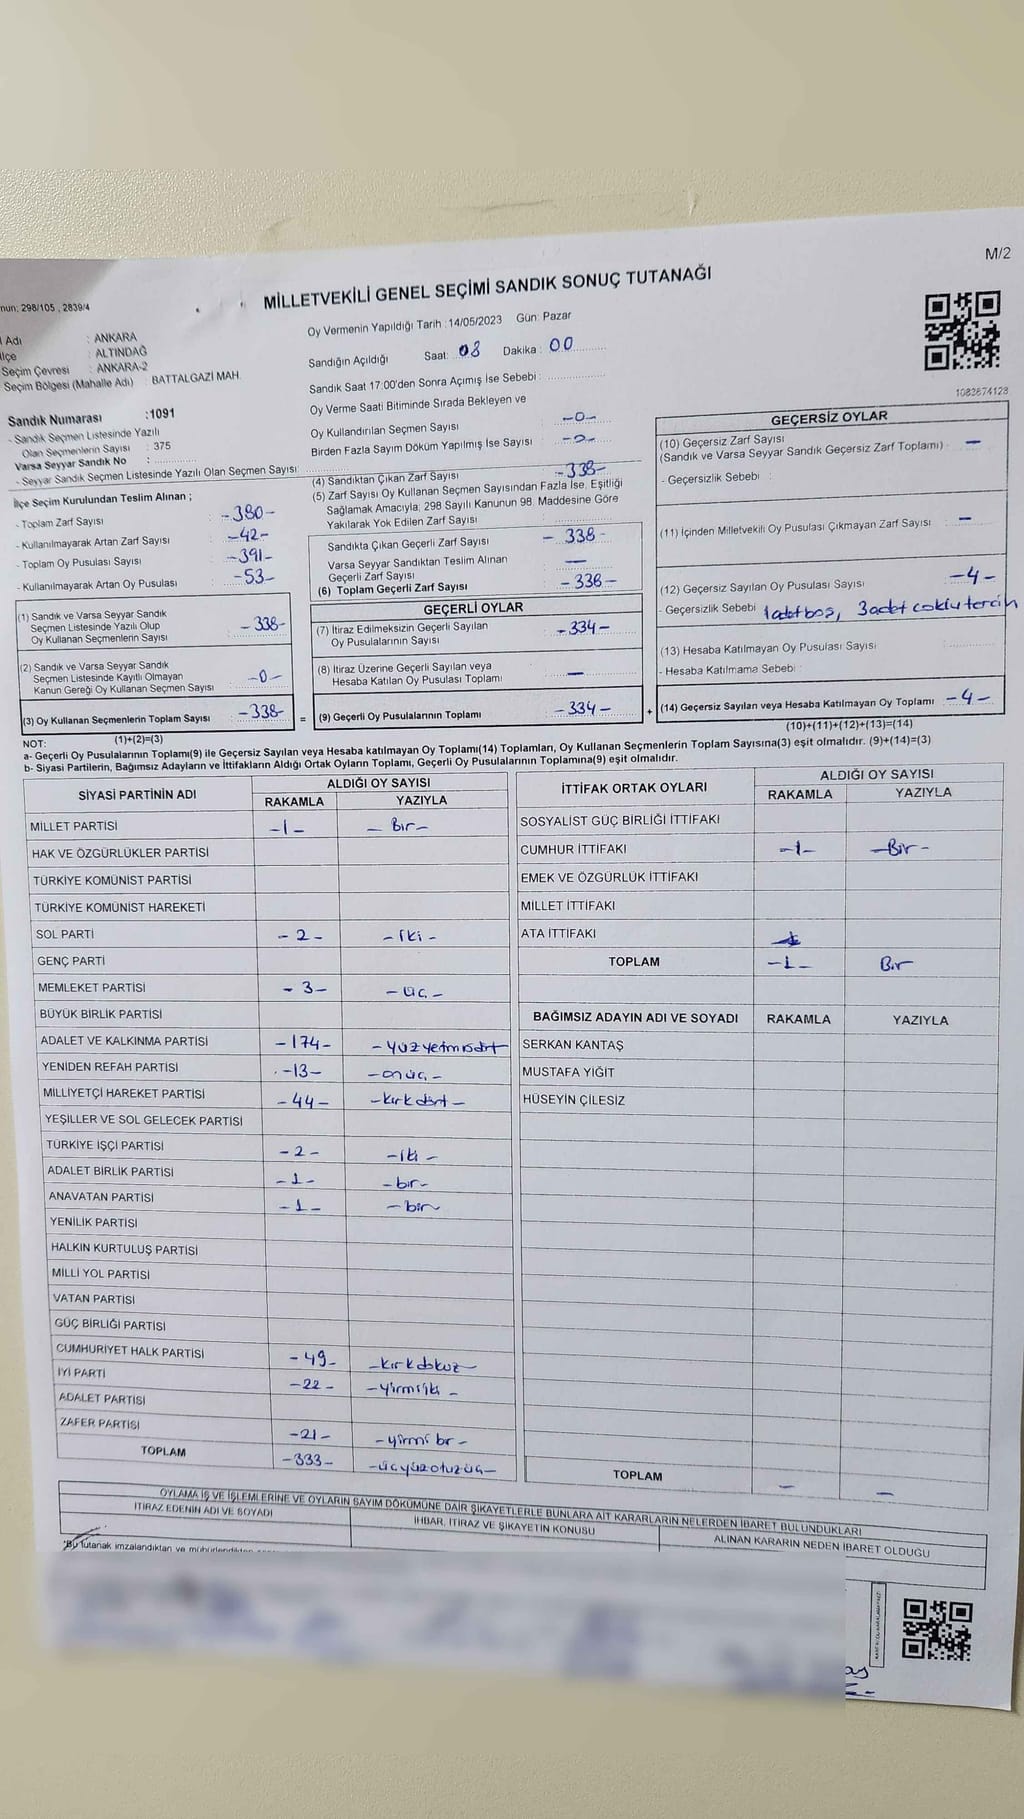 M/2
nun: 298/105 , 2839/4
MİLLETVEKİLİ GENEL SEÇİMİ SANDIK SONUÇ TUTANAĞI
Adı : ANKARA
ilçe : ALTINDAĞ
Seçim Çevresi : ANKARA-2
Seçim Bölgesi (Mahalle Adı) : BATTALGAZİ MAH.
Oy Vermenin Yapıldığı Tarih :14/05/2023 Gün: Pazar
Sandığın Açıldığı Saat: 08 Dakika : 00
Sandık Saat 17:00'den Sonra Açımış İse Sebebi :
Oy Verme Saati Bitiminde Sırada Bekleyen ve
Oy Kullandırılan Seçmen Sayısı -0-
Birden Fazla Sayım Döküm Yapılmış İse Sayısı -0-
1082874128
Sandık Numarası :1091
- Sandık Seçmen Listesinde Yazılı
Olan Seçmenlerin Sayısı : 375
Varsa Seyyar Sandık No :
- Seyyar Sandık Seçmen Listesinde Yazılı Olan Seçmen Sayısı:
İlçe Seçim Kurulundan Teslim Alınan ;
- Toplam Zarf Sayısı : -380-
- Kullanılmayarak Artan Zarf Sayısı : -42-
- Toplam Oy Pusulası Sayısı : -391-
- Kullanılmayarak Artan Oy Pusulası : -53-
(1) Sandık ve Varsa Seyyar Sandık
Seçmen Listesinde Yazılı Olup
Oy Kullanan Seçmenlerin Sayısı : -338-
(2) Sandık ve Varsa Seyyar Sandık
Seçmen Listesinde Kayıtlı Olmayan
Kanun Gereği Oy Kullanan Seçmen Sayısı : -0-
(3) Oy Kullanan Seçmenlerin Toplam Sayısı : -338-
(1)+(2)=(3)
(4) Sandıktan Çıkan Zarf Sayısı -338-
(5) Zarf Sayısı Oy Kullanan Seçmen Sayısından Fazla İse, Eşitliği
Sağlamak Amacıyla, 298 Sayılı Kanunun 98. Maddesine Göre
Yakılarak Yok Edilen Zarf Sayısı
Sandıkta Çıkan Geçerli Zarf Sayısı - 338 -
Varsa Seyyar Sandıktan Teslim Alınan
Geçerli Zarf Sayısı —
(6) Toplam Geçerli Zarf Sayısı - 338 -
GEÇERLİ OYLAR
(7) İtiraz Edilmeksizin Geçerli Sayılan
Oy Pusulalarının Sayısı : -334-
(8) İtiraz Üzerine Geçerli Sayılan veya
Hesaba Katılan Oy Pusulası Toplamı : —
= (9) Geçerli Oy Pusulalarının Toplamı : -334-
GEÇERSİZ OYLAR
(10) Geçersiz Zarf Sayısı
(Sandık ve Varsa Seyyar Sandık Geçersiz Zarf Toplamı) : —
- Geçersizlik Sebebi :
(11) İçinden Milletvekili Oy Pusulası Çıkmayan Zarf Sayısı : —
(12) Geçersiz Sayılan Oy Pusulası Sayısı : -4-
- Geçersizlik Sebebi : 1 adet boş, 3 adet coklu tercih
(13) Hesaba Katılmayan Oy Pusulası Sayısı
- Hesaba Katılmama Sebebi :
+ (14) Geçersiz Sayılan veya Hesaba Katılmayan Oy Toplamı : -4-
(10)+(11)+(12)+(13)=(14)
NOT:
a- Geçerli Oy Pusulalarının Toplamı(9) ile Geçersiz Sayılan veya Hesaba katılmayan Oy Toplamı(14) Toplamları, Oy Kullanan Seçmenlerin Toplam Sayısına(3) eşit olmalıdır. (9)+(14)=(3)
b- Siyasi Partilerin, Bağımsız Adayların ve İttifakların Aldığı Ortak Oyların Toplamı, Geçerli Oy Pusulalarının Toplamına(9) eşit olmalıdır.
SİYASİ PARTİNİN ADI ALDIĞI OY SAYISI
RAKAMLA YAZIYLA
MİLLET PARTİSİ -1- - Bir -
HAK VE ÖZGÜRLÜKLER PARTİSİ
TÜRKİYE KOMÜNİST PARTİSİ
TÜRKİYE KOMÜNİST HAREKETİ
SOL PARTİ - 2 - - İki -
GENÇ PARTİ
MEMLEKET PARTİSİ - 3 - - üç -
BÜYÜK BİRLİK PARTİSİ
ADALET VE KALKINMA PARTİSİ -174- - yüzyetmisdört
YENİDEN REFAH PARTİSİ -13- - onüç -
MİLLİYETÇİ HAREKET PARTİSİ -44- - kırkdört -
YEŞİLLER VE SOL GELECEK PARTİSİ
TÜRKİYE İŞÇİ PARTİSİ - 2 - - iki -
ADALET BİRLİK PARTİSİ -1- - bir -
ANAVATAN PARTİSİ -1- - bir -
YENİLİK PARTİSİ
HALKIN KURTULUŞ PARTİSİ
MİLLİ YOL PARTİSİ
VATAN PARTİSİ
GÜÇ BİRLİĞİ PARTİSİ
CUMHURİYET HALK PARTİSİ - 49 - - kırkdokuz
İYİ PARTİ - 22 - - yirmiiki -
ADALET PARTİSİ
ZAFER PARTİSİ -21- - yirmi bir -
TOPLAM -333- - üçyüzotuzüç -
İTTİFAK ORTAK OYLARI ALDIĞI OY SAYISI
RAKAMLA YAZIYLA
SOSYALİST GÜÇ BİRLİĞİ İTTİFAKI
CUMHUR İTTİFAKI -1- - Bir -
EMEK VE ÖZGÜRLÜK İTTİFAKI
MİLLET İTTİFAKI
ATA İTTİFAKI
TOPLAM -1- Bir
BAĞIMSIZ ADAYIN ADI VE SOYADI RAKAMLA YAZIYLA
SERKAN KANTAŞ
MUSTAFA YİĞİT
HÜSEYİN ÇİLESİZ
TOPLAM — —
OYLAMA İŞ VE İŞLEMLERİNE VE OYLARIN SAYIM DÖKÜMÜNE DAİR ŞİKAYETLERLE BUNLARA AİT KARARLARIN NELERDEN İBARET BULUNDUKLARI
İTİRAZ EDENİN ADI VE SOYADI İHBAR, İTİRAZ VE ŞİKAYETİN KONUSU ALINAN KARARIN NEDEN İBARET OLDUĞU
*Bu tutanak imzalandıktan ve mühürlendikten